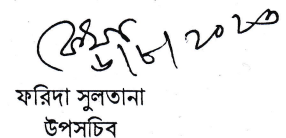 ৬/৮/২০২৩
ফরিদা সুলতানা
উপসচিব